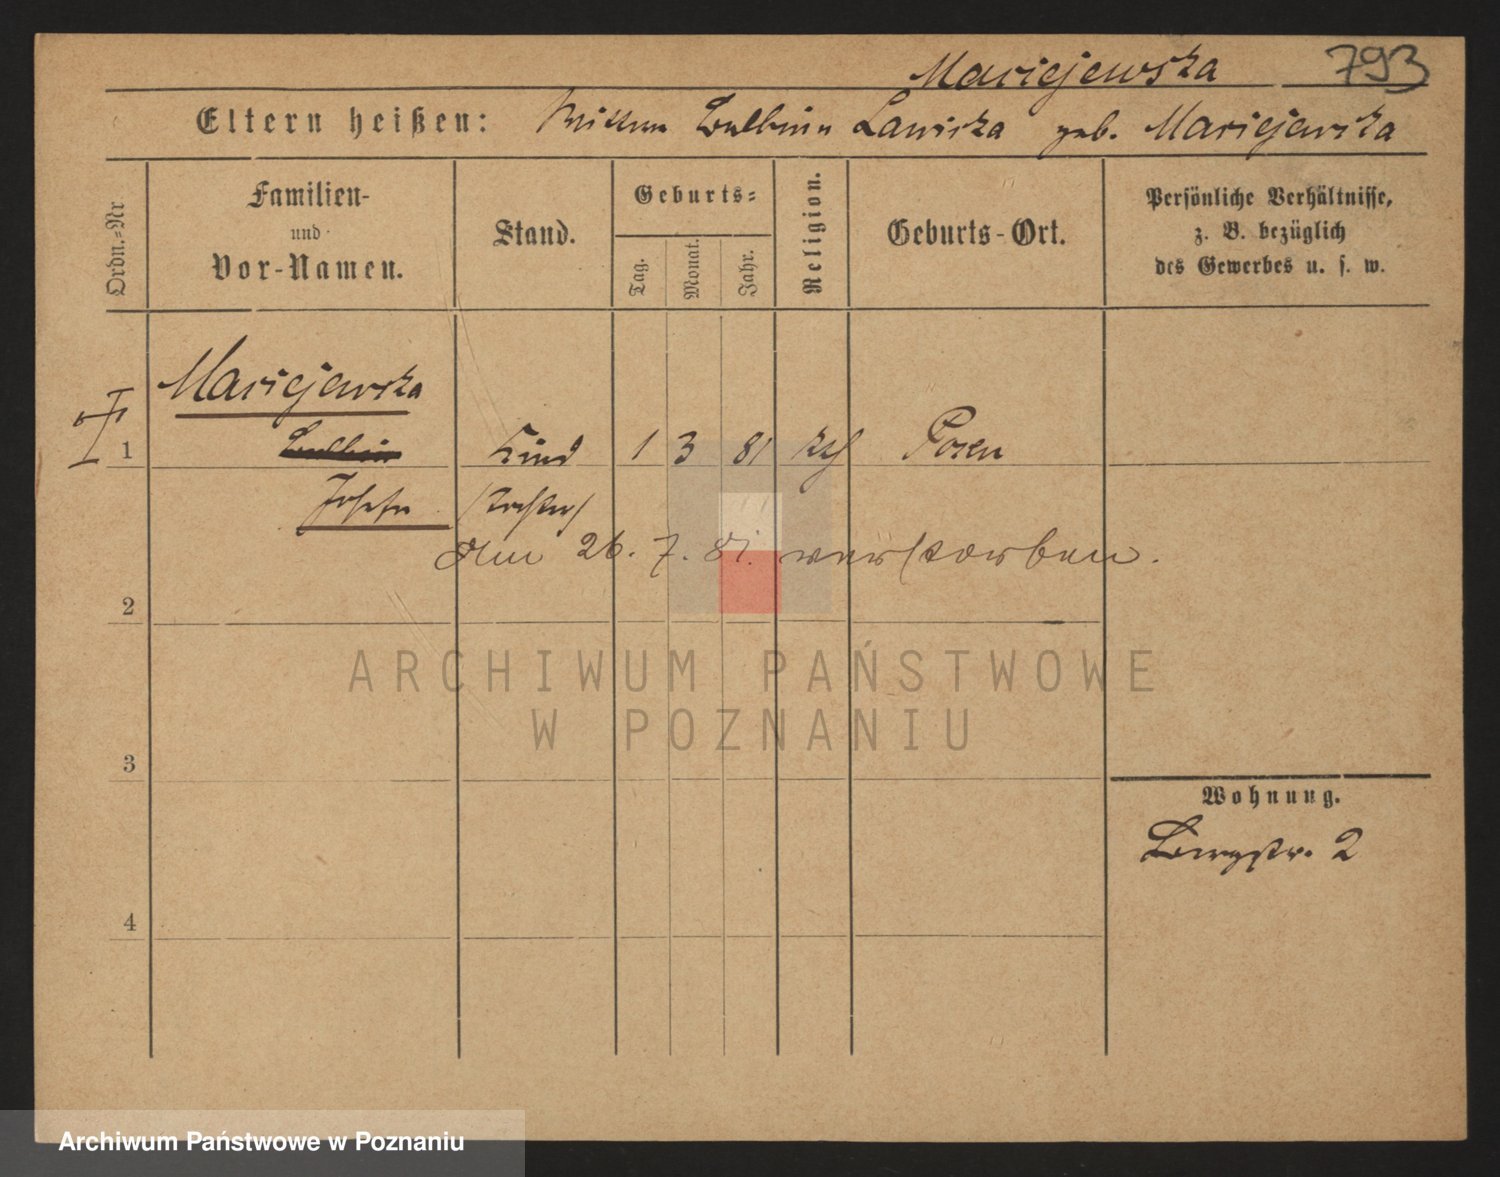 Maciejewska 793
Eltern heißen: Balbina Lawicka geb. Maciejewska
Ordn.-Nr
Familien-
und
Vor-Namen.
Stand.
Geburts-
Tag.
Monat.
Jahr.
Religion.
Geburts-Ort.
Persönliche Verhältnisse,
z. B. bezüglich
des Gewerbes u. s. w.
Maciejewska
1 Kind 1 3 81 kth Posen
Josefa
am 26. 7. 81. verstorben.
2
ARCHIWUM PAŃSTWOWE
W POZNANIU
3
Wohnung.
Bergstr. 2
4
Archiwum Państwowe w Poznaniu